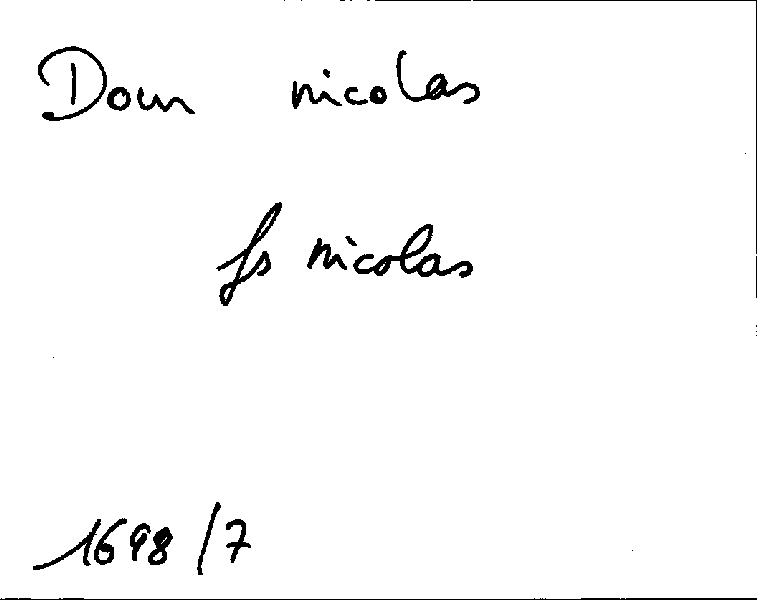 Doun nicolas
fs nicolas
1698/7